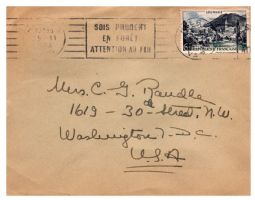 SOIS PRUDENT
EN FORÊT
ATTENTION AU FEU
LOURDES
RÉPUBLIQUE FRANÇAISE
Mrs. C. G. Randle
1619 - 30th Street, N.W.
Washington 7. D.C.
U.S.A